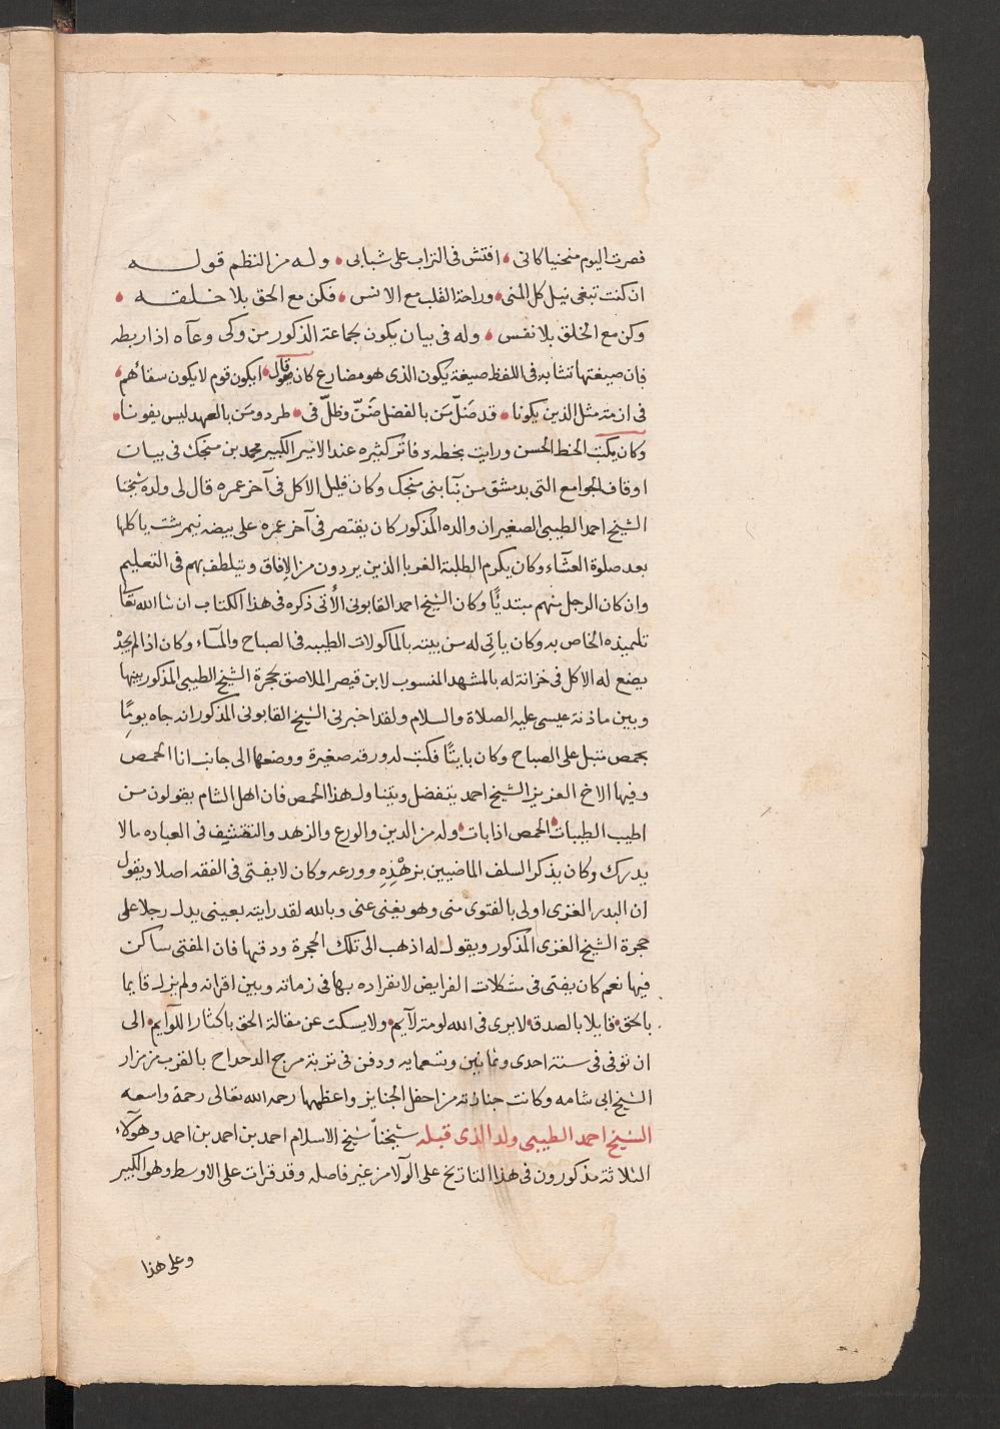 فصرت اليوم منحنيا كانى • افتش فى التراب على شبابى • وله من النظم قوله
ان كنت تبغى نيل كل المنى • وراحة القلب مع الانس • فكن مع الحق بلا خلقه •
وكن مع الخلق بلا نفس • وله فى بيان يكون لجماعة الذكور من وكى وعآه اذا ربطه
فان صيغتها تشابه فى اللفظ صيغة يكون الذى هو مضارع كان فقال • ايكون قوم لا يكون سقائهم •
فى ازمة مثل الذين يكونا • قد ضلّ من بالفضل ضَنّ وظلّ فى • طرد ومن بالعهد ليس يفونا •
وكان يكتب الخط الحسن ورايت بخطه دفاتر كثيره عند الامير الكبير محمد بن منجك فى بيان
اوقاف الجوامع التى بدمشق من بنآ بنى منجك وكان قليل الاكل فى آخر عمره قال لى ولده شيخنا
الشيخ احمد الطيبى الصغير ان والده المذكور كان يقتصر فى آخر عمره على بيضه نيمرشت ياكلها
بعد صلوة العشآء وكان يكرم الطلبة الغربا الذين يردون من الافاق ويتلطف بهم فى التعليم
وان كان الرجل منهم مبتديًا وكان الشيخ احمد القابونى الأتى ذكره فى هذا الكتاب ان شا الله تعآ
تلميذه الخاص به وكان ياتى له من بيته بالماكولات الطيبه فى الصباح والمسآء وكان اذا لم يجدْ
يضع له الاكل فى خزانة له بالمشهد المنسوب لابن قيصر الملاصق لحجرة الشيخ الطيبى المذكور بينها
وبين ماذنة عيسى عليه الصلاة والسلام ولقد اخبرنى الشيخ القابونى المذكور انه جاه يومًا
بحمص متبل على الصباح وكان بايتًا فكتب له ورقة صغيرة ووضعها الى جانب انا الحمص
وفيها الاخ العزيز الشيخ احمد يتفضل ويتناول هذا الحمص فان اهل الشام يقولون من
اطيب الطيبات • الحمص اذا بات • وله من الدين والورع والزهد والتقشف فى العباده ما لا
يدرك وكان يذكر السلف الماضيين بزهْدِهِ وورعه وكان لا يفتى فى الفقه اصلا ويقول
ان البدر الغزى اولى بالفتوى منى وهو يغنى عنى وبالله لقد رايته بعينى يدل رجلا على
حجرة الشيخ الغزى المذكور ويقول له اذهب الى تلك الحجرة ودقها فان المفتى ساكن
فيها نعم كان يفتى فى مشكلات الفرايض لانفراده بها فى زمانه وبين اقرانه ولم يزل قايما
بالحق • قايلا بالصدق • لا يرى فى الله لومة لآيم • ولا يسكت عن مقالة الحق باكثار اللوآيم • الى
ان توفى فى سنة احدى وثمانين وتسعمايه ودفن فى تربة مرج الدحداح بالقرب من مزار
الشيخ ابى شامه وكانت جنازته من احفل الجنايز واعظمها رحمه الله تعالى رحمة واسعه
الشيخ احمد الطيبى ولد الذى قبله شيخنا شيخ الاسلام احمد بن احمد بن احمد وهولآء
الثلاثة مذكورون فى هذا التاريخ على الولا من غير فاصله وقد قرات على الاوسط وهو الكبير
وعلى هذا